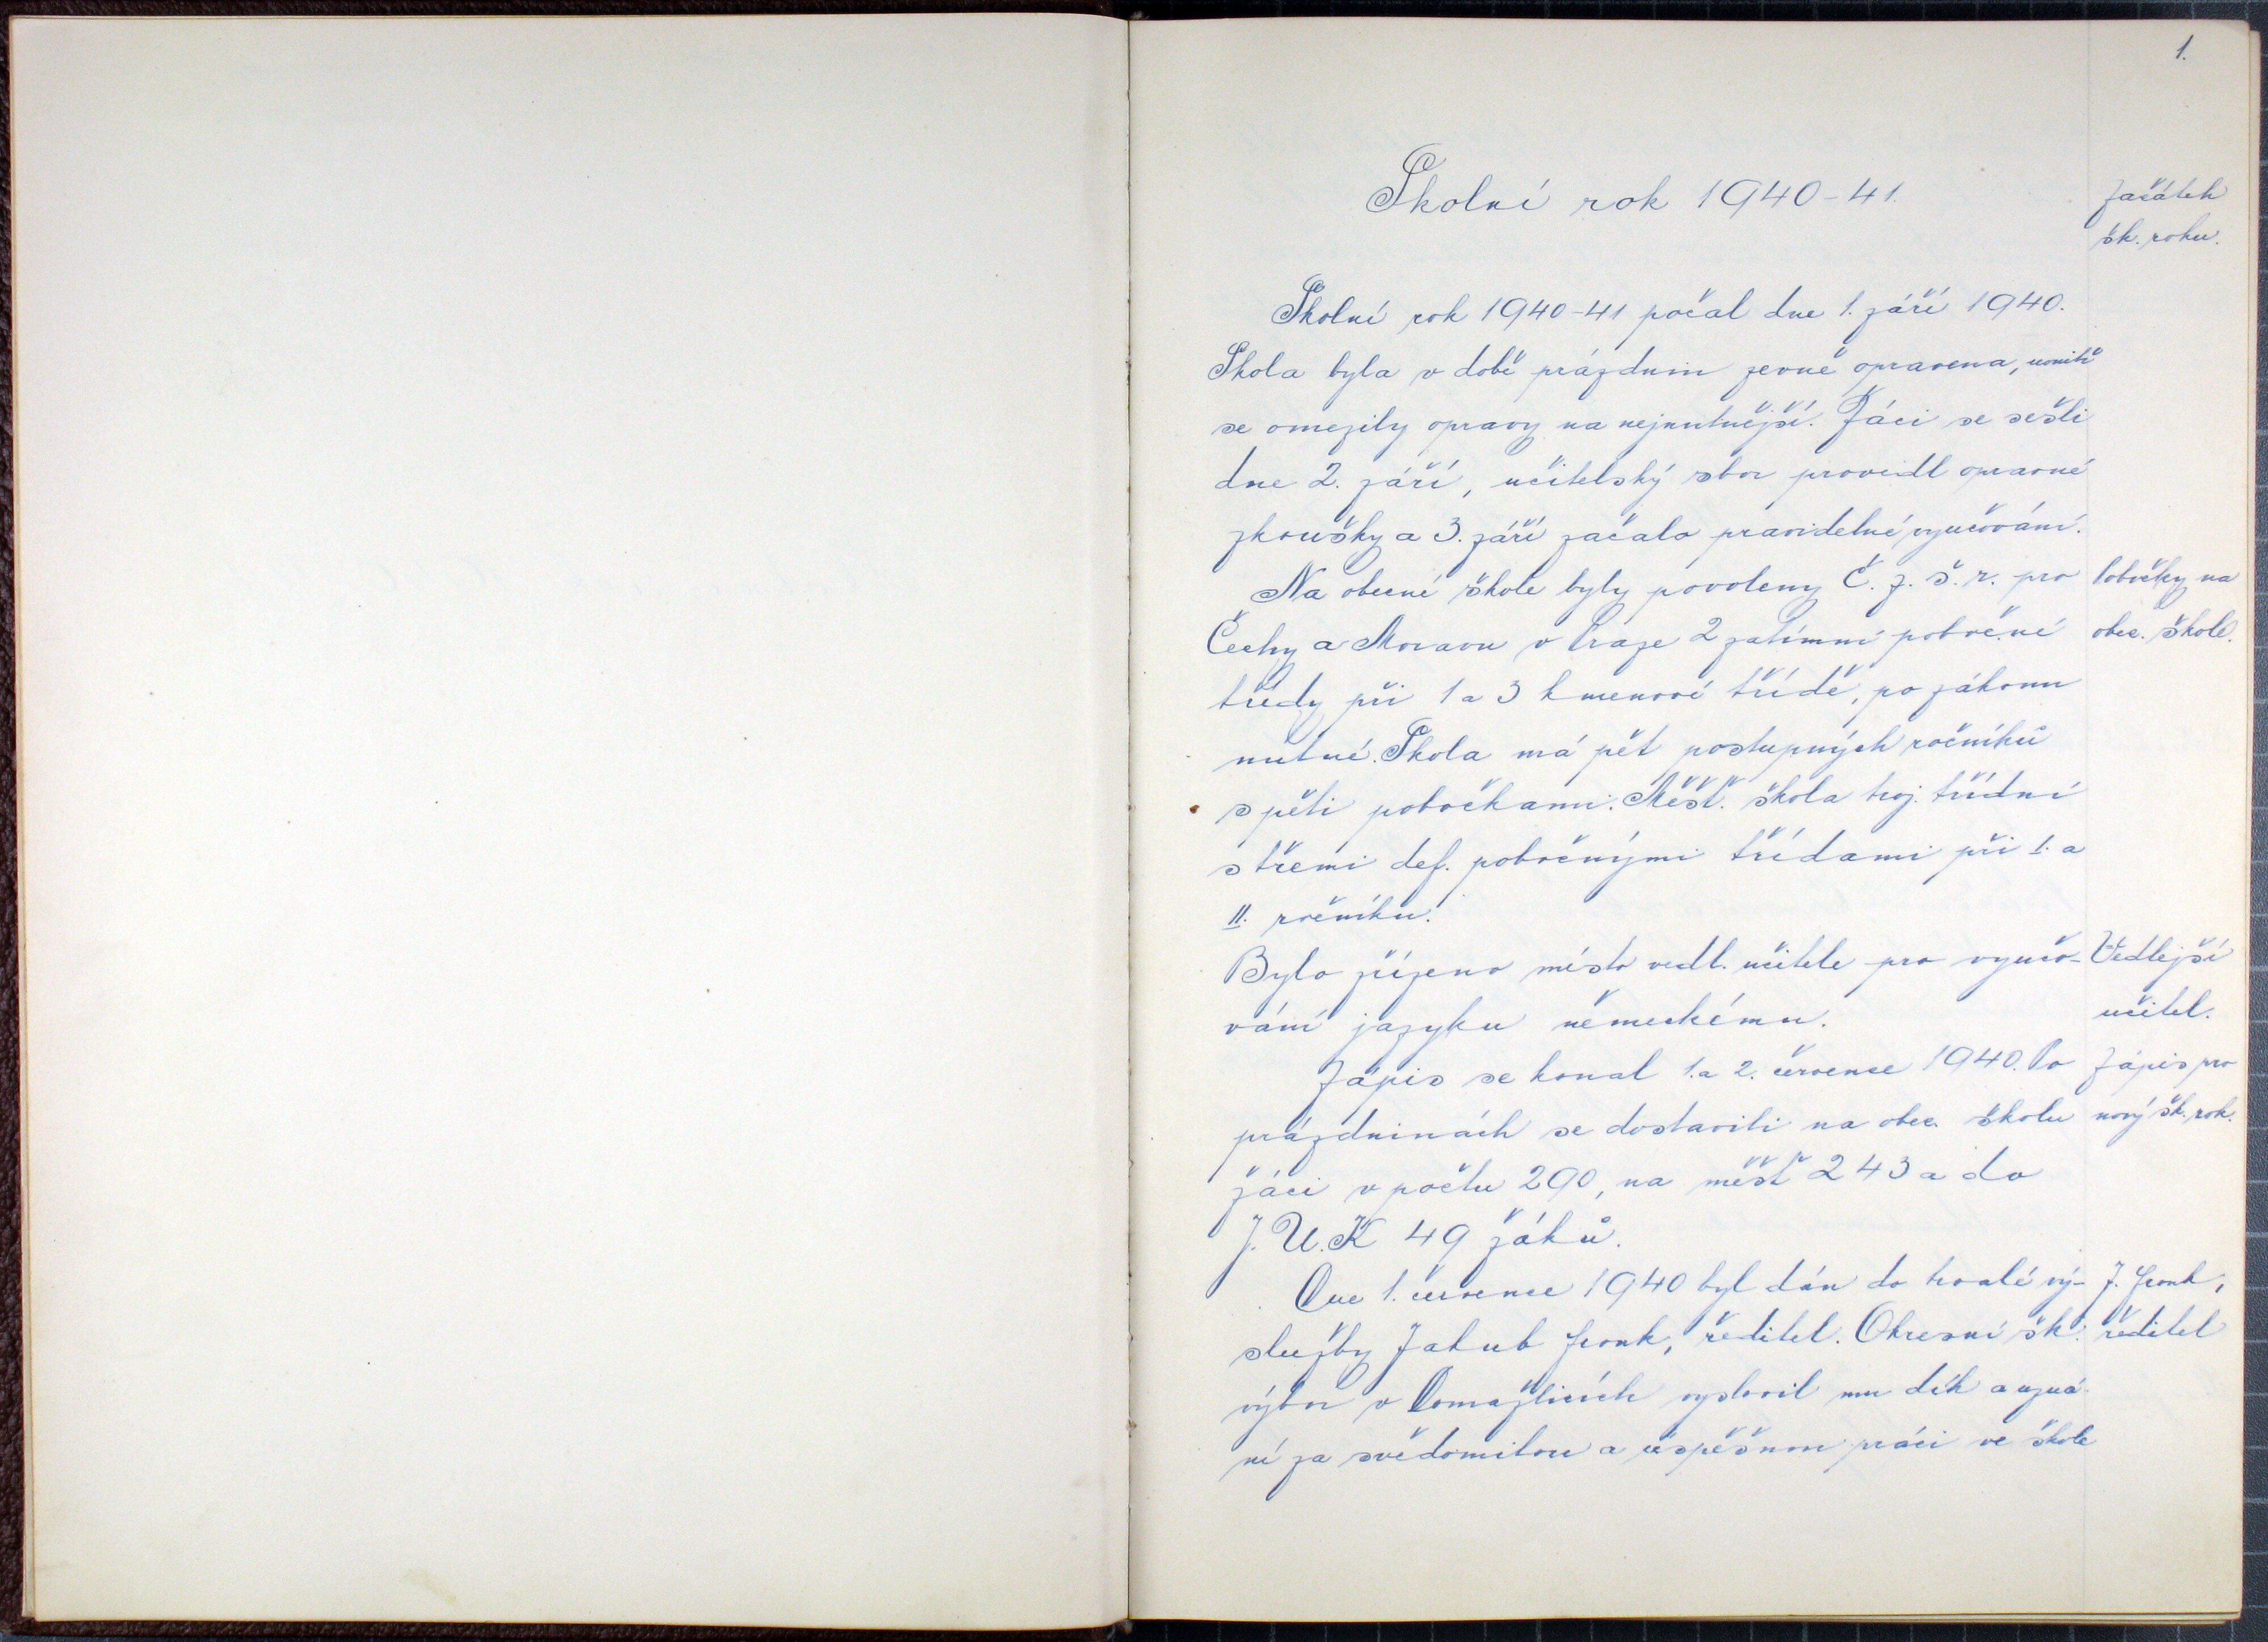 1.
Školní rok 1940-41.
Začátek
šk. roku.
Školní rok 1940-41 počal dne 1. září 1940.
Škola byla v době prázdnin zevně opravena, uvnitř
se omezily opravy na nejnutnější. Žáci se sešli
dne 2. září, učitelský sbor provedl opravné
zkoušky a 3. září začalo pravidelné vyučování.
Na obecné škole byly povoleny Č. z. š. r. pro
Pobočky na
Čechy a Moravu v Praze 2 zatímní pobočné
obec. škole.
třídy při 1 a 3 kmenové třídě, po zákonu
nutné. Škola má pět postupných ročníků
s pěti pobočkami. Měšť. škola troj. třídní
s třemi def. pobočnými třídami při I. a
II. ročníku.
Bylo zřízeno místo vedl. učitele pro vyučo-
Vedlejší
vání jazyku německému.
učitel.
Zápis se konal 1. a 2. července 1940. Po
Zápis pro
prázdninách se dostavili na obec. školu
nový šk. rok.
žáci v počtu 290, na měšť 243 a do
J. U. K 49 žáků.
Dne 1. července 1940 byl dán do trvalé vý-
J. Fronk,
služby Jakub Fronk, ředitel. Okresní šk.
ředitel
výbor v Domažlicích vyslovil mu dík a uzná-
ní za svědomitou a úspěšnou práci ve škole